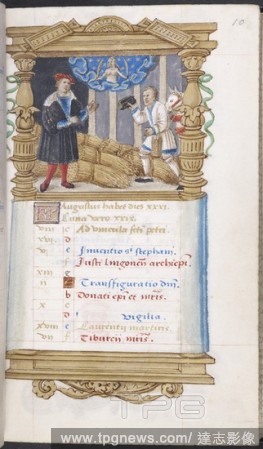 10
Augustus habet dies xxxi.
Luna vero xxix.
viii c Ad vincula scti petri.
xvi d
v e Inventio sci stephani.
f Justi lugdonen archiepi.
xiii g
ii A Transfiguratio dni.
b Donati epi et mris.
x c
d Vigilia.
xviii e Laurentii martiris.
vii f Tiburcii mris.
TPG
www.tpgnews.com / 達志影像